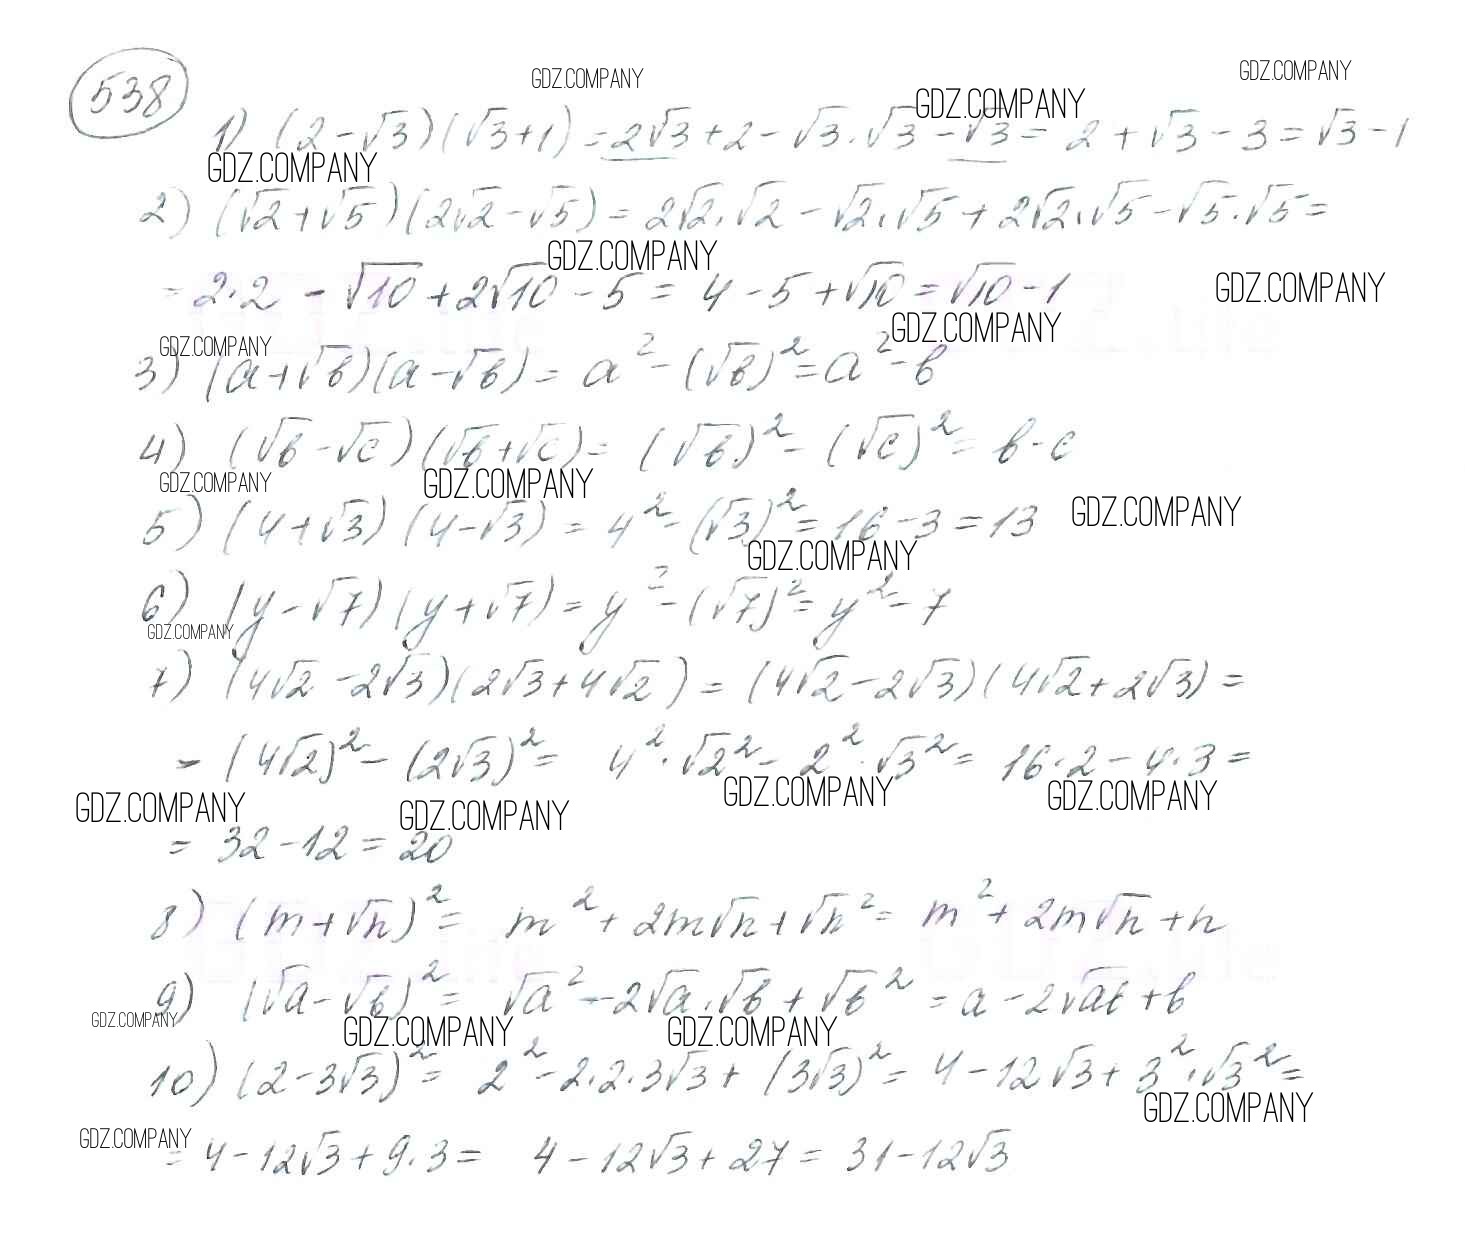 538
GDZ.COMPANY
GDZ.COMPANY
GDZ.COMPANY
1) (2-√3)(√3+1) = 2√3 + 2 - √3·√3 - √3 = 2 + √3 - 3 = √3 - 1
GDZ.COMPANY
2) (√2+√5)(2√2-√5) = 2√2·√2 - √2·√5 + 2√2·√5 - √5·√5 =
GDZ.COMPANY
= 2·2 - √10 + 2√10 - 5 = 4 - 5 + √10 = √10 - 1
GDZ.COMPANY
GDZ.COMPANY
GDZ.COMPANY
3) (a+√b)(a-√b) = a² - (√b)² = a² - b
4) (√b-√c)(√b+√c) = (√b)² - (√c)² = b - c
GDZ.COMPANY
GDZ.COMPANY
GDZ.COMPANY
5) (4+√3)(4-√3) = 4² - (√3)² = 16 - 3 = 13
GDZ.COMPANY
6) (y-√7)(y+√7) = y² - (√7)² = y² - 7
GDZ.COMPANY
7) (4√2-2√3)(2√3+4√2) = (4√2-2√3)(4√2+2√3) =
- (4√2)² - (2√3)² = 4²·√2² - 2²·√3² = 16·2 - 4·3 =
GDZ.COMPANY
GDZ.COMPANY
GDZ.COMPANY
GDZ.COMPANY
= 32 - 12 = 20
8) (m+√n)² = m² + 2m√n + √n² = m² + 2m√n + n
9) (√a-√b)² = √a² - 2√a·√b + √b² = a - 2√ab + b
GDZ.COMPANY
GDZ.COMPANY
GDZ.COMPANY
10) (2-3√3)² = 2² - 2·2·3√3 + (3√3)² = 4 - 12√3 + 3²·√3² =
GDZ.COMPANY
GDZ.COMPANY
= 4 - 12√3 + 9·3 = 4 - 12√3 + 27 = 31 - 12√3